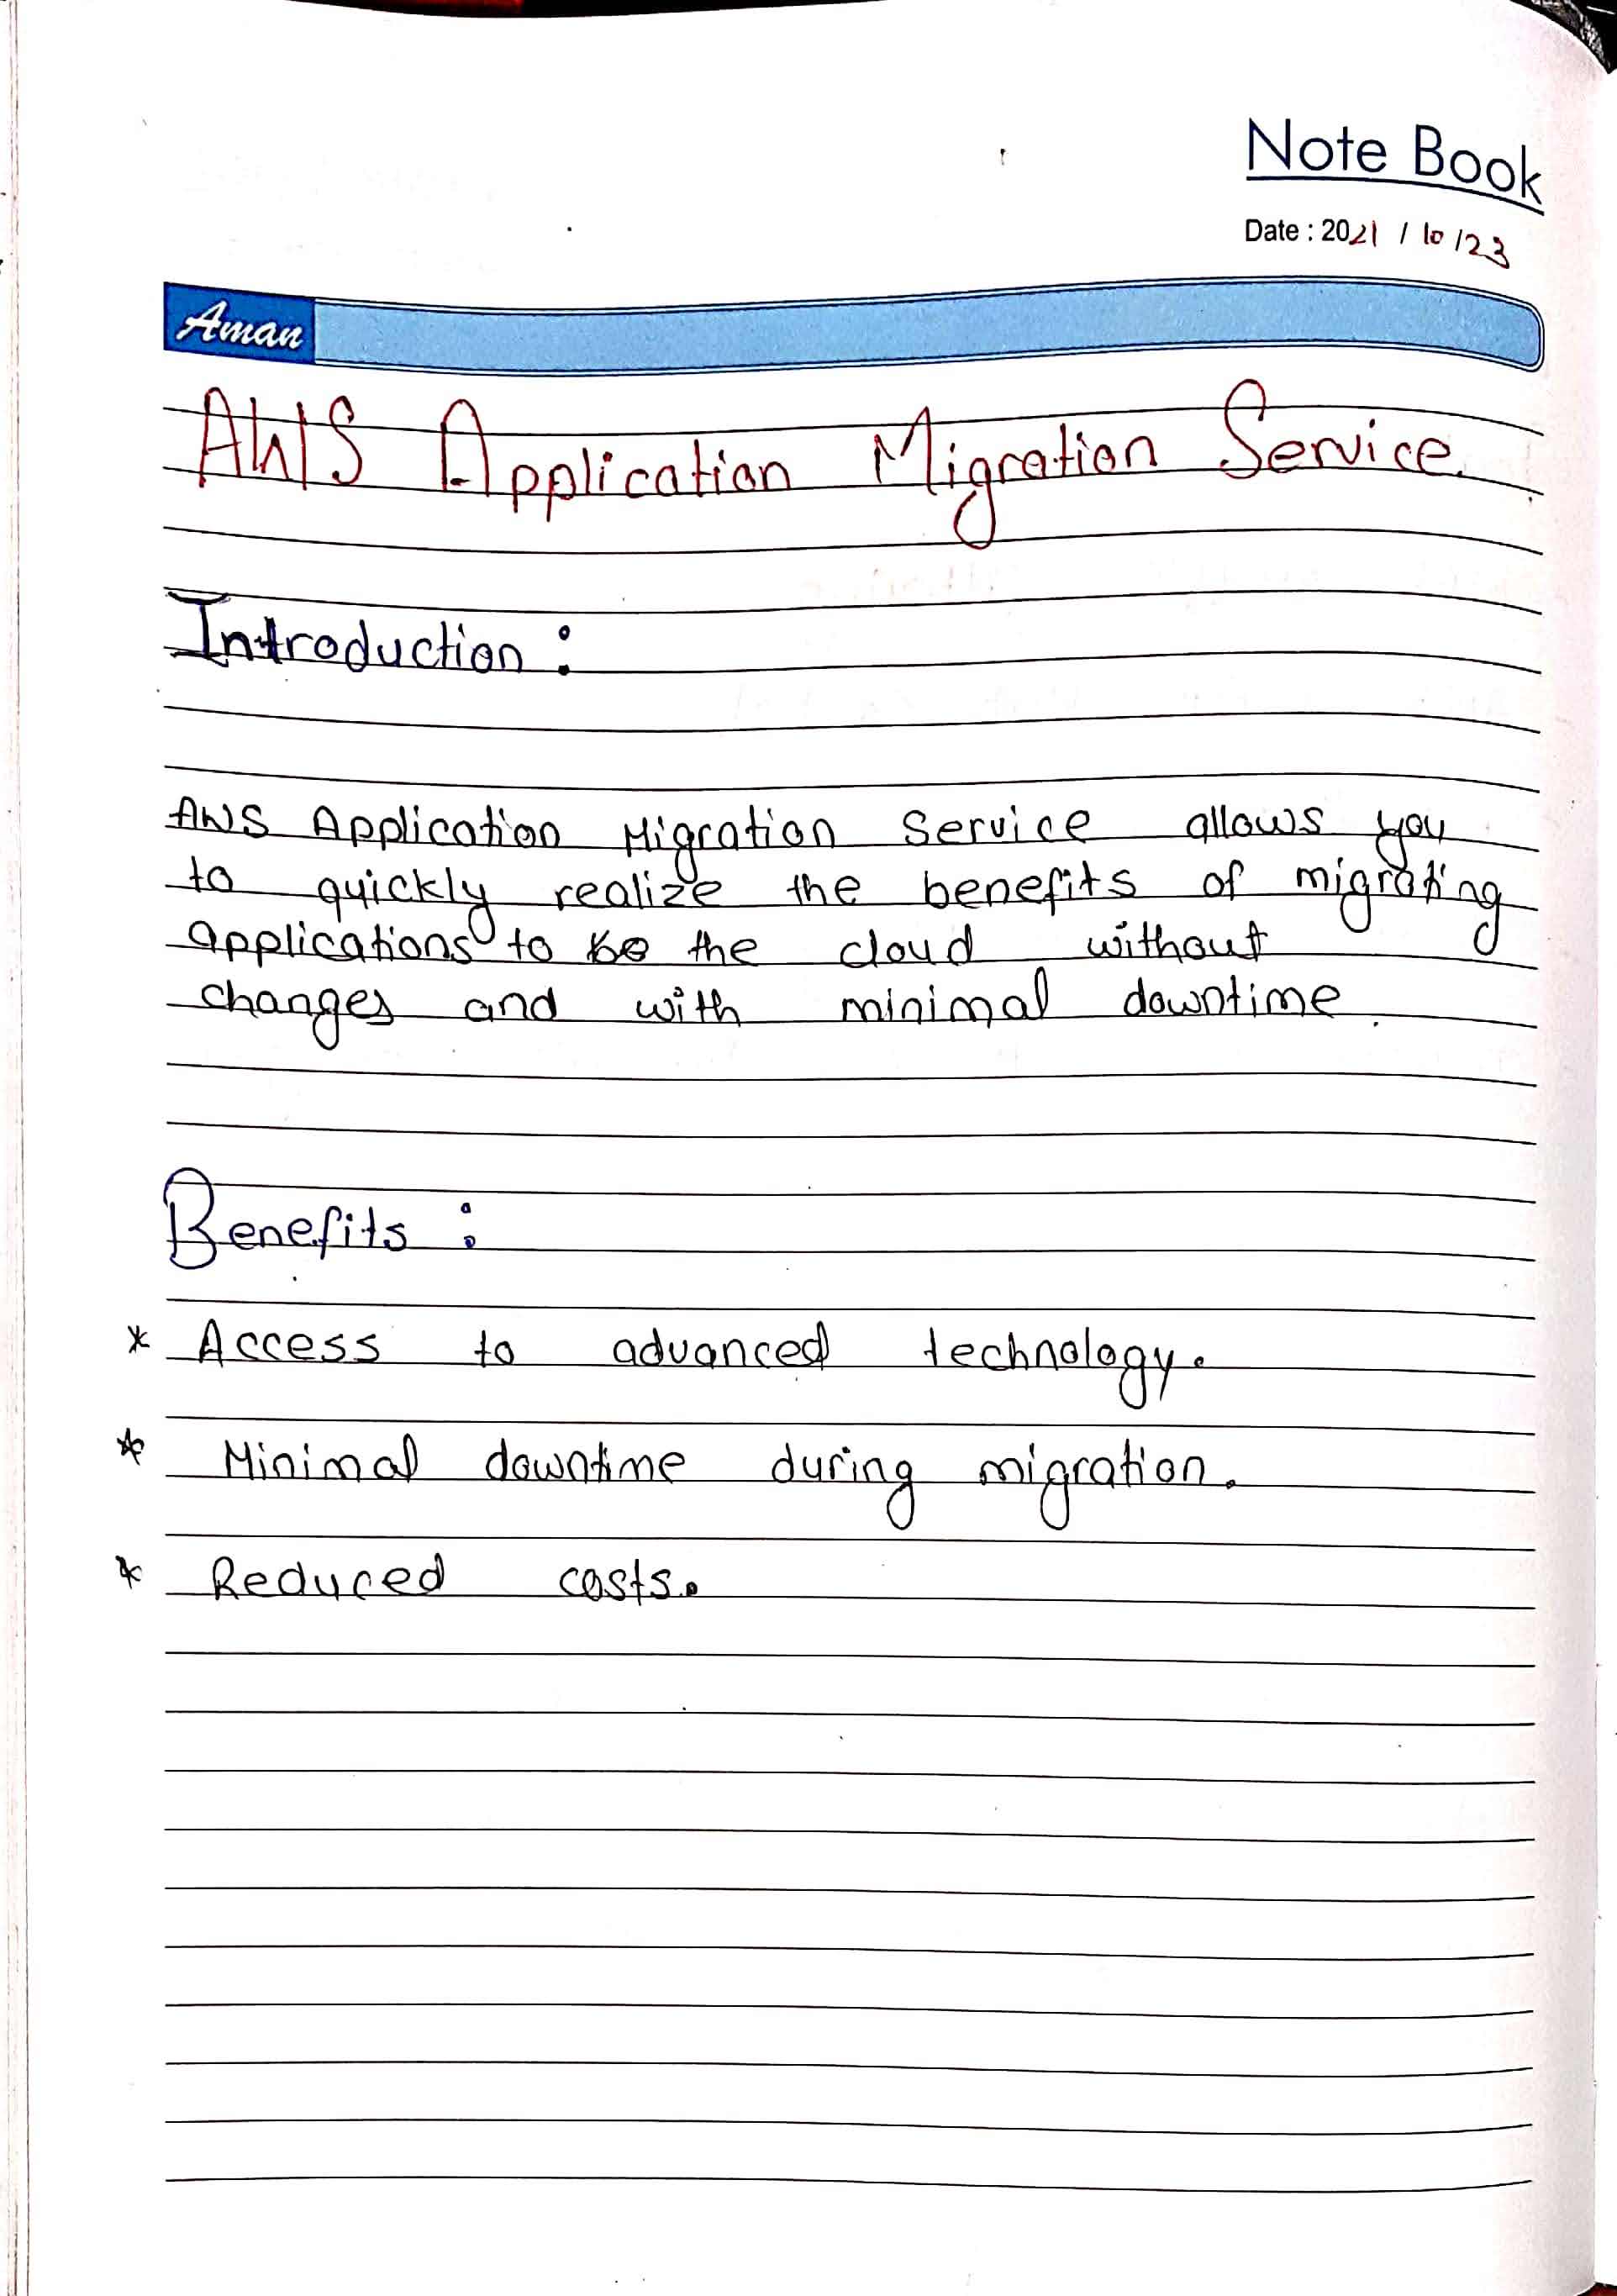 Note Book
Date : 2021 / 10 / 23
Aman
AWS Application Migration Service
Introduction :
AWS Application Migration Service allows you
to quickly realize the benefits of migrating
applications to be the cloud without
changes and with minimal downtime.
Benefits :
* Access to advanced technology.
* Minimal downtime during migration.
* Reduced costs.